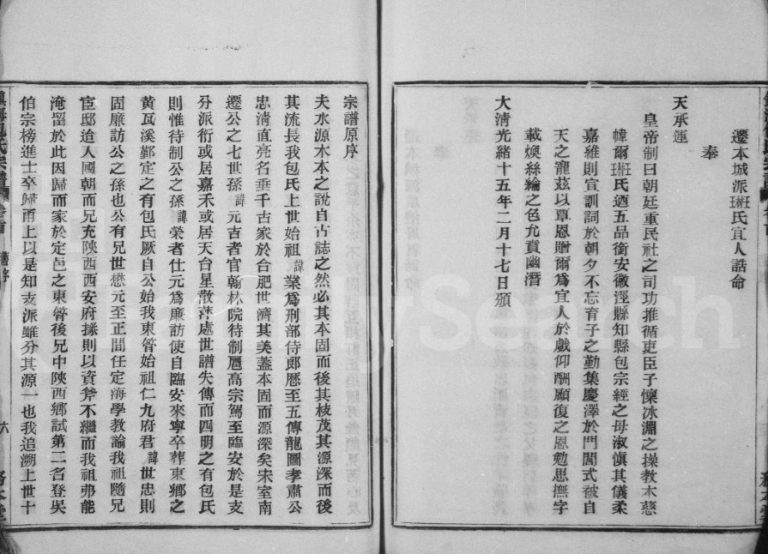 遷本城派班氏宜人誥命
奉
天承運
皇帝制曰朝廷重民社之司功推循吏臣子懍冰淵之操教本慈
幃爾班氏迺五品銜安徽涇縣知縣包宗經之母淑愼其儀柔
嘉維則宣訓詞於朝夕不忘育子之勤集慶澤於門閭式被自
天之寵茲以覃恩贈爾爲宜人於戲仰酬顧復之恩勉思撫字
載煥絲綸之色允賁幽潛
大清光緒十五年二月十七日頒
宗譜原序
夫水源木本之說自古誌之然必其本固而後其枝茂其源深而後
其流長我包氏上世始祖諱業爲刑部侍郎歷至五傳龍圖孝肅公
忠清直亮名垂千古家於合肥世濟其美蓋本固而源深矣宋室南
遷公之七世孫諱元吉者官翰林院待制扈高宗駕至臨安於是支
分派衍或居嘉禾或居天台星散萍處世譜失傳而四明之有包氏
則惟待制公之孫諱榮者仕元爲廉訪使自臨安來寧卒葬東鄉之
黃瓦溪鄞定之有包氏厥自公始我東管始祖仁九府君諱世忠則
固廉訪公之孫也公有兄世懋元至正間任定海學教諭我祖隨兄
宦邸迨入國朝而兄充陝西西安府掾則以資斧不繼而我祖弗能
淹留於此因歸而家於定邑之東管後兄中陝西鄉試第二名登吳
伯宗榜進士卒歸甬上以是知支派雖分其源一也我追溯上世十
鎮海包氏宗譜 卷首 譜序 六 務本堂